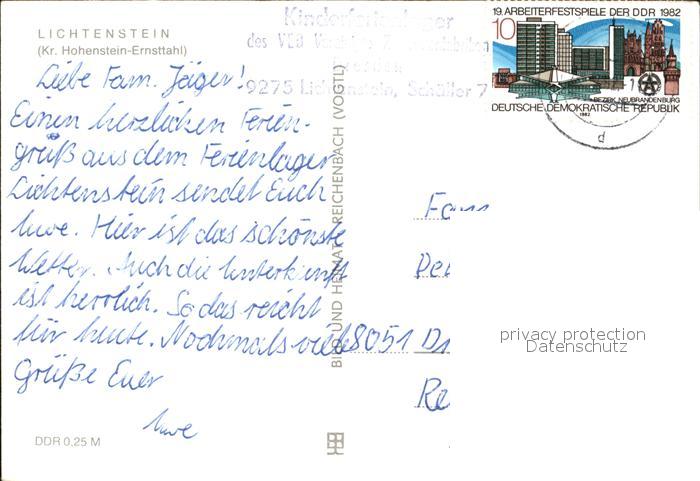 LICHTENSTEIN
(Kr. Hohenstein-Ernstthal)
Liebe Fam. Jäger!
Einen herzlichen Ferien-
gruß aus dem Ferienlager
Lichtenstein sendet Euch
Uwe. Hier ist das schönste
Wetter. Auch die Unterkunft
ist herrlich. So das reicht
für heute. Nochmals viele
Grüße Euer
Uwe
DDR 0,25 M
BILD UND HEIMAT REICHENBACH (VOGTL)
Kinderferienlager
des VEB
Dresden
9275 Lichtenstein, Schüller 7
19. ARBEITERFESTSPIELE DER DDR 1982
10
BEZIRK NEUBRANDENBURG
DEUTSCHE DEMOKRATISCHE REPUBLIK
1982
d
Fam
8051 D
privacy protection
Datenschutz